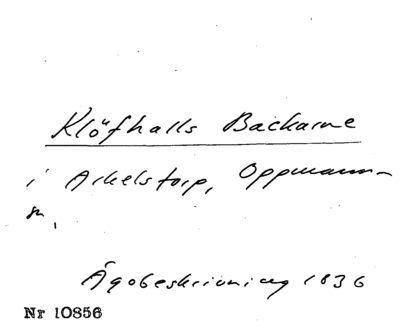 Klöfhalls Backarne
i Arkelstorp, Oppmanna
sn,
Ägobeskrivning 1836
Nr 10856